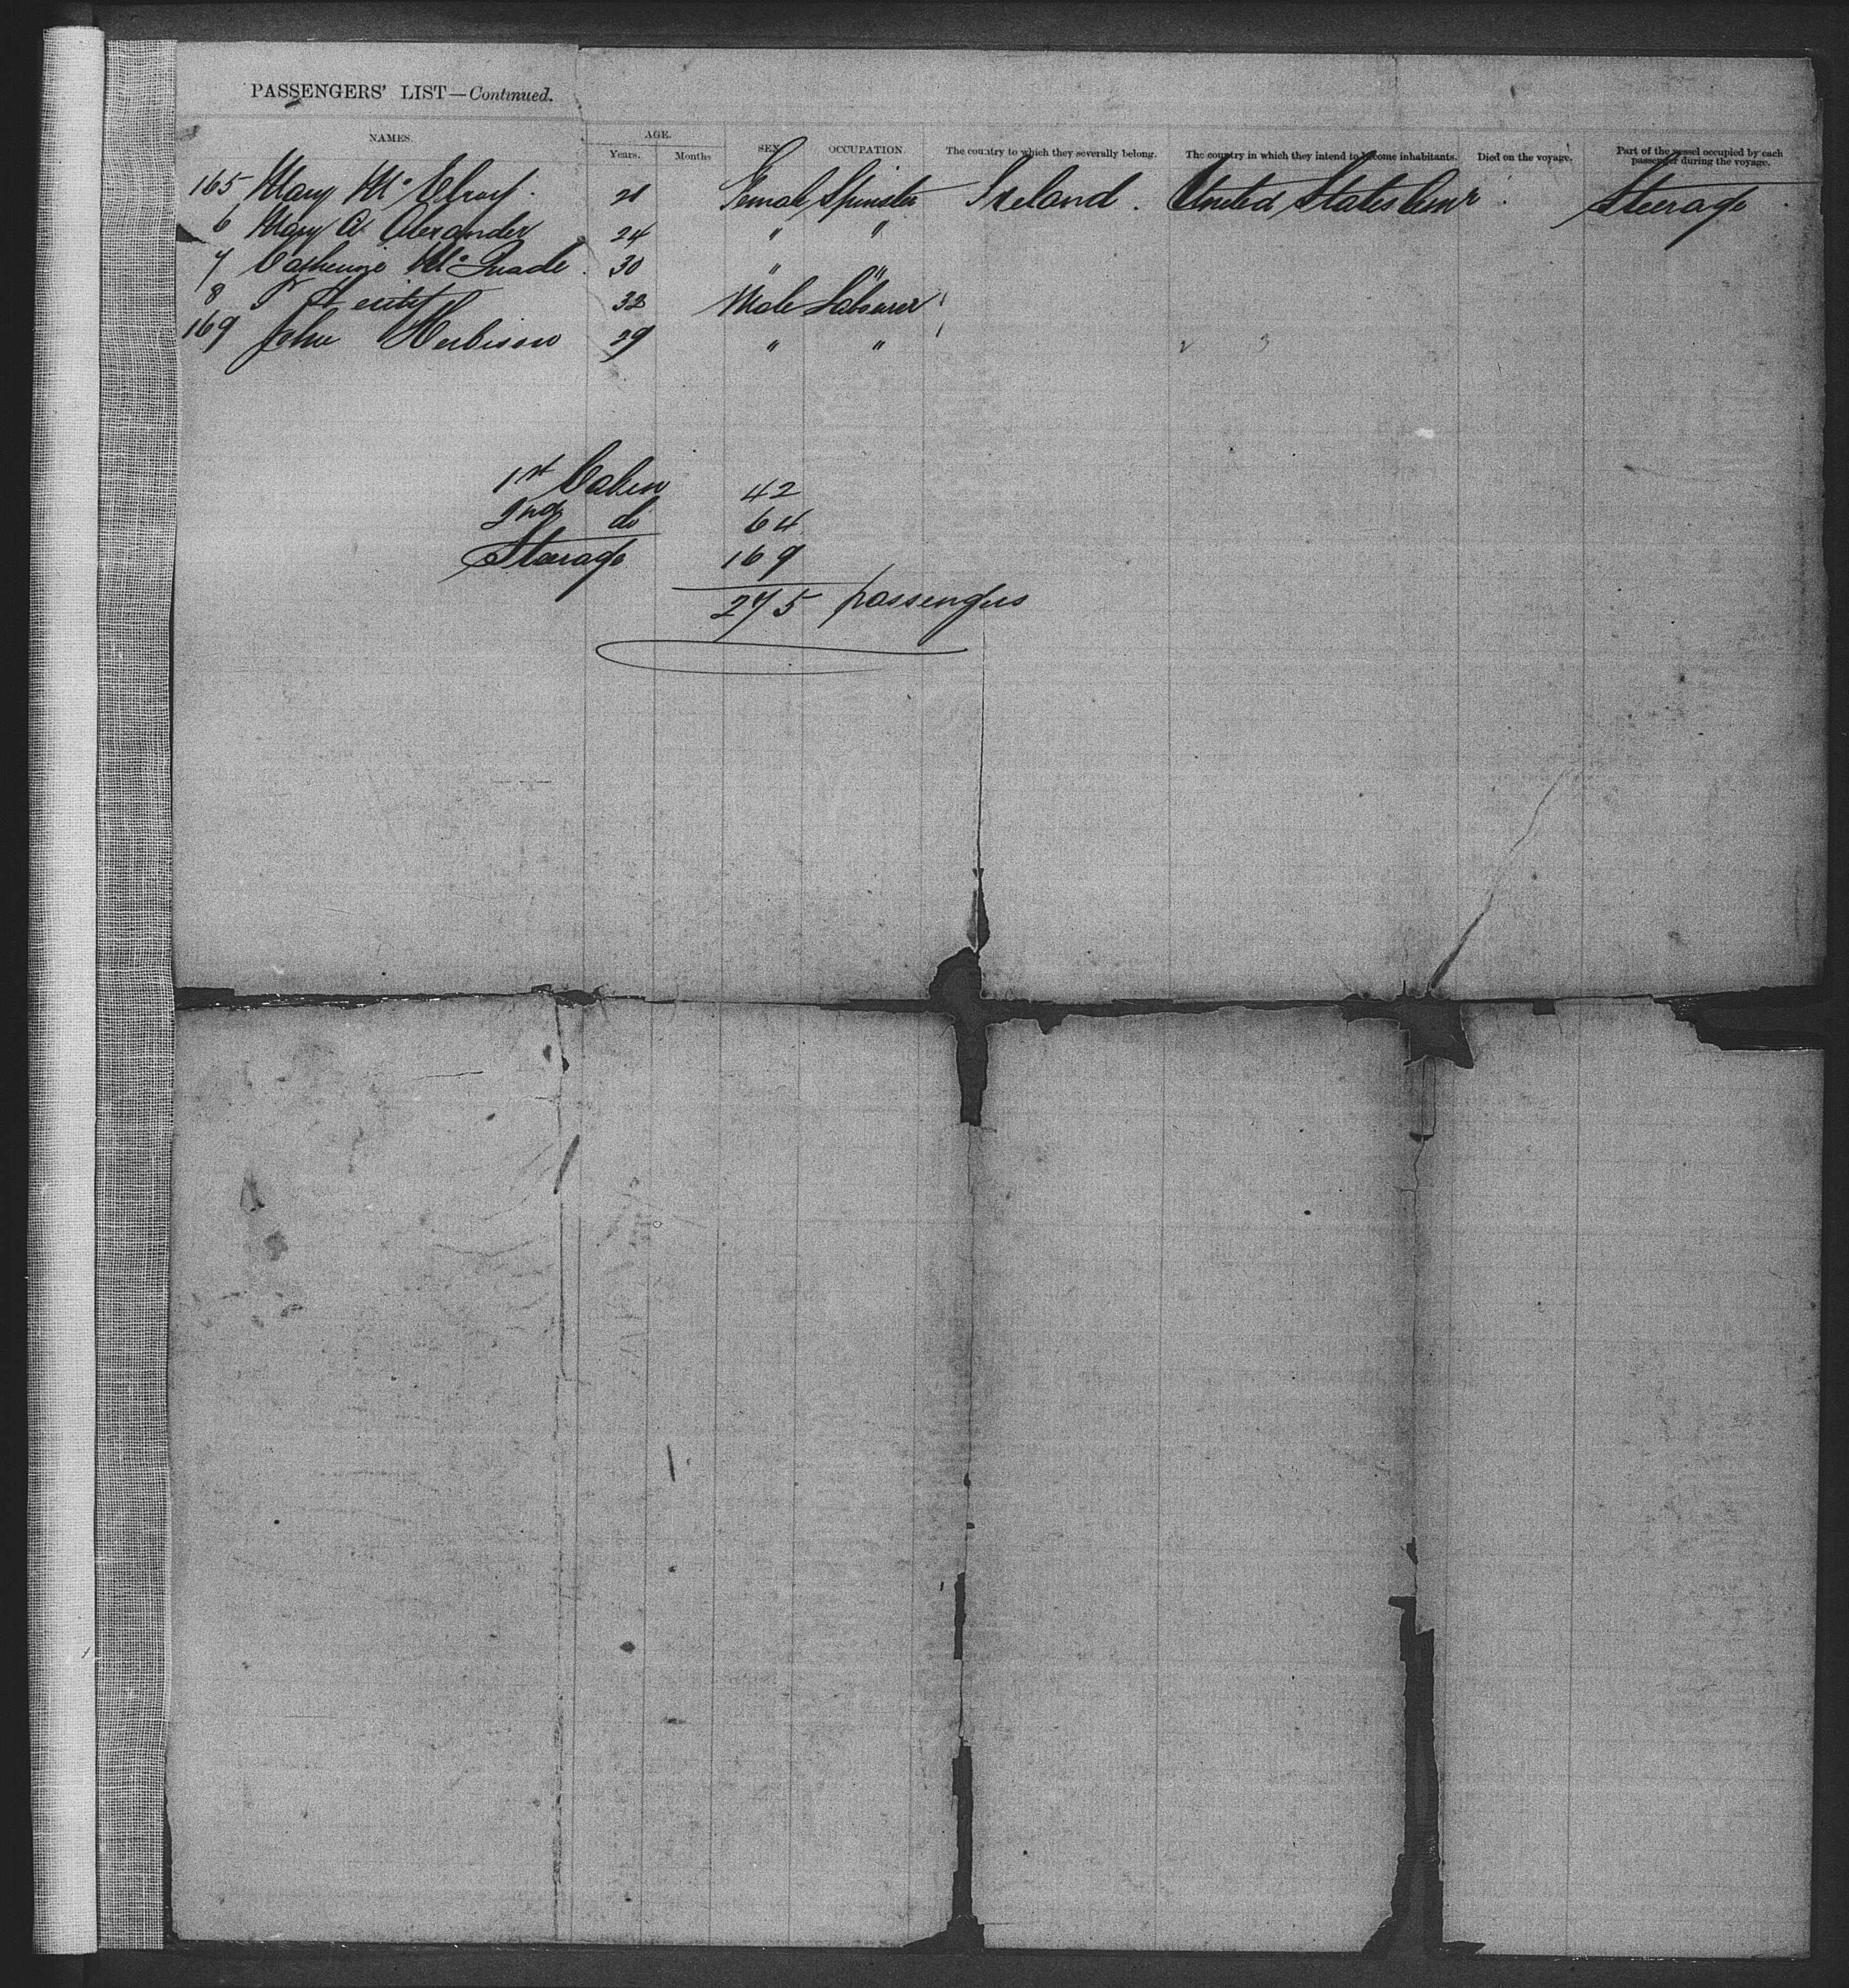 PASSENGERS' LIST—Continued.
NAMES. AGE. Years. Months SEX OCCUPATION. The country to which they severally belong. The country in which they intend to become inhabitants. Died on the voyage. Part of the vessel occupied by each passenger during the voyage.
165 Mary McElroy 21 Female Spinster Ireland. United States Steerage
6 Mary A. Alexander 24 " "
7 Catherine McQuade 30 " "
8 32 Male Labourer
169 John Herbison 29 " "
1st Cabin 42
2nd do 64
Steerage 169
275 passengers